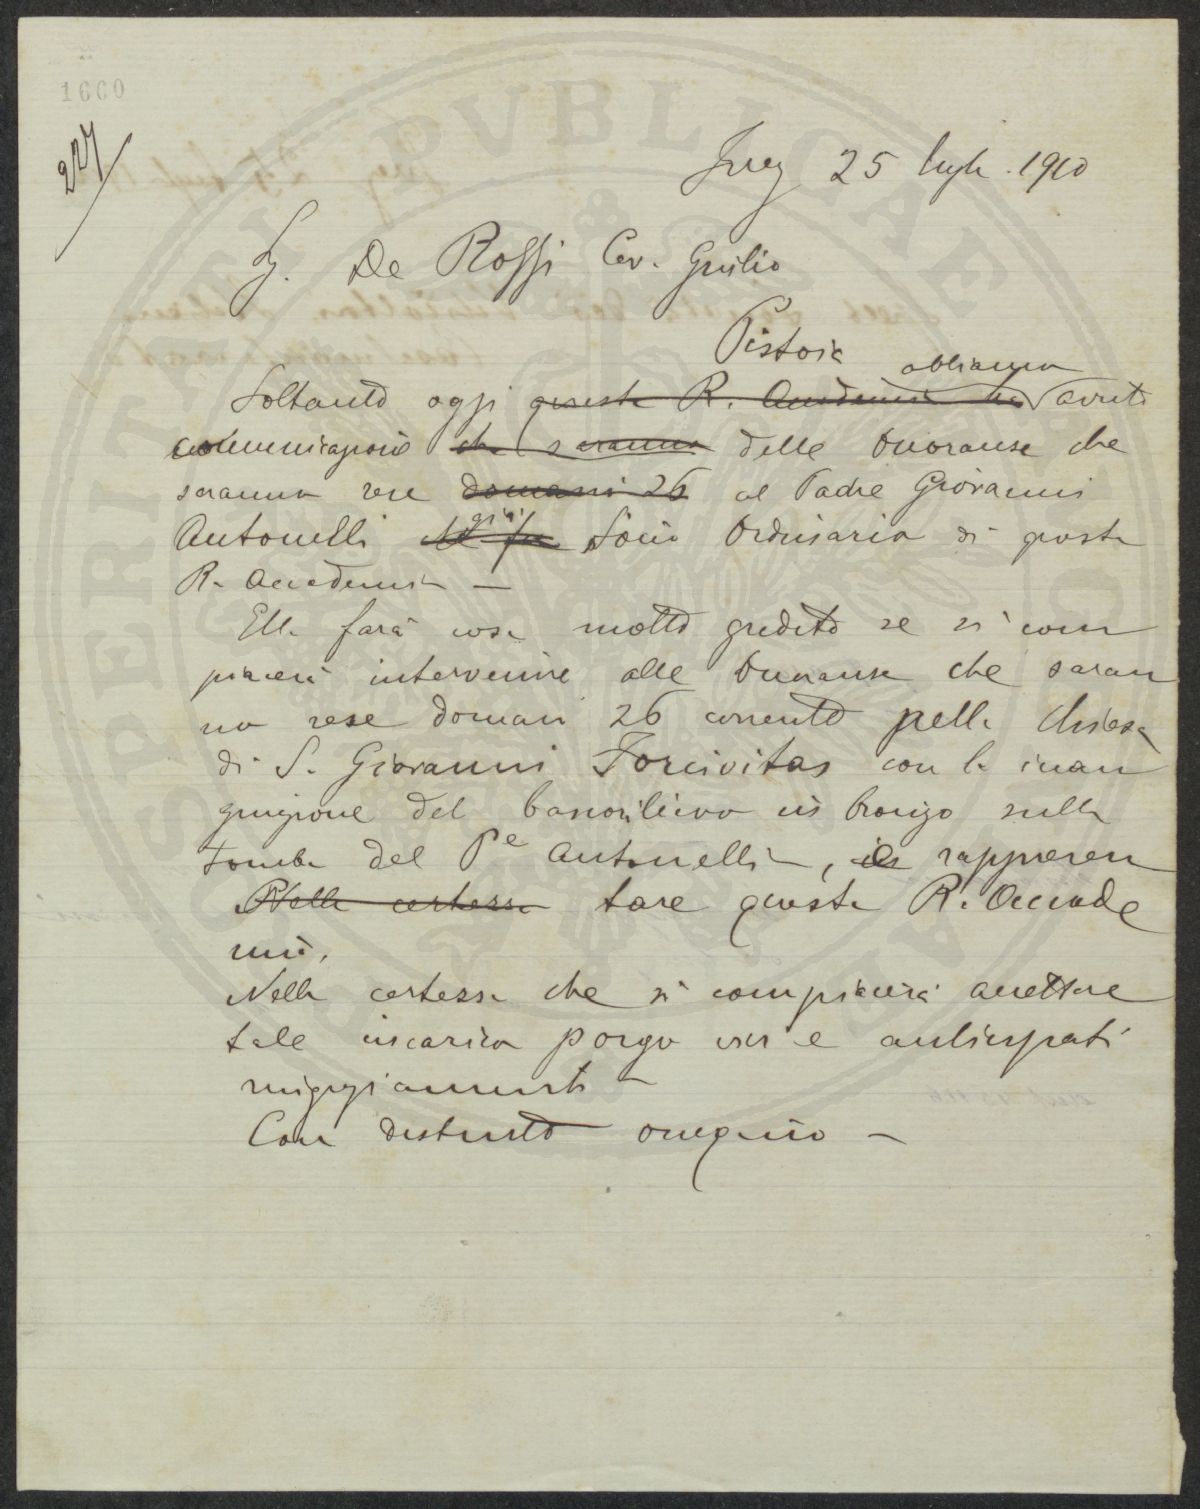 1660
227
25 luglio. 1910
Sg. De Rossi Cav. Giulio
Pistoia
abbiamo
Soltanto oggi questa R. Accademia ha avuto
comunicazione che saranno delle Onoranze che
saranno rese domani 26 al Padre Giovanni
già
Antonelli Socio Ordinario di questa
R. Accademia —
Ella farà cosa molto gradita se si com
piacerà intervenire alle Onoranze che saran
no rese domani 26 corrente nella Chiesa
di S. Giovanni Forcivitas con la inau
gurazione del bassorilievo in bronzo sulla
tomba del Pe Antonelli —, a rappresen
Nella certezza tare questa R. Accade
mia.
Nella certezza che si compiacerà accettare
tale incarico porgo vivi e anticipati
ringraziamenti —
Con distinto ossequio —